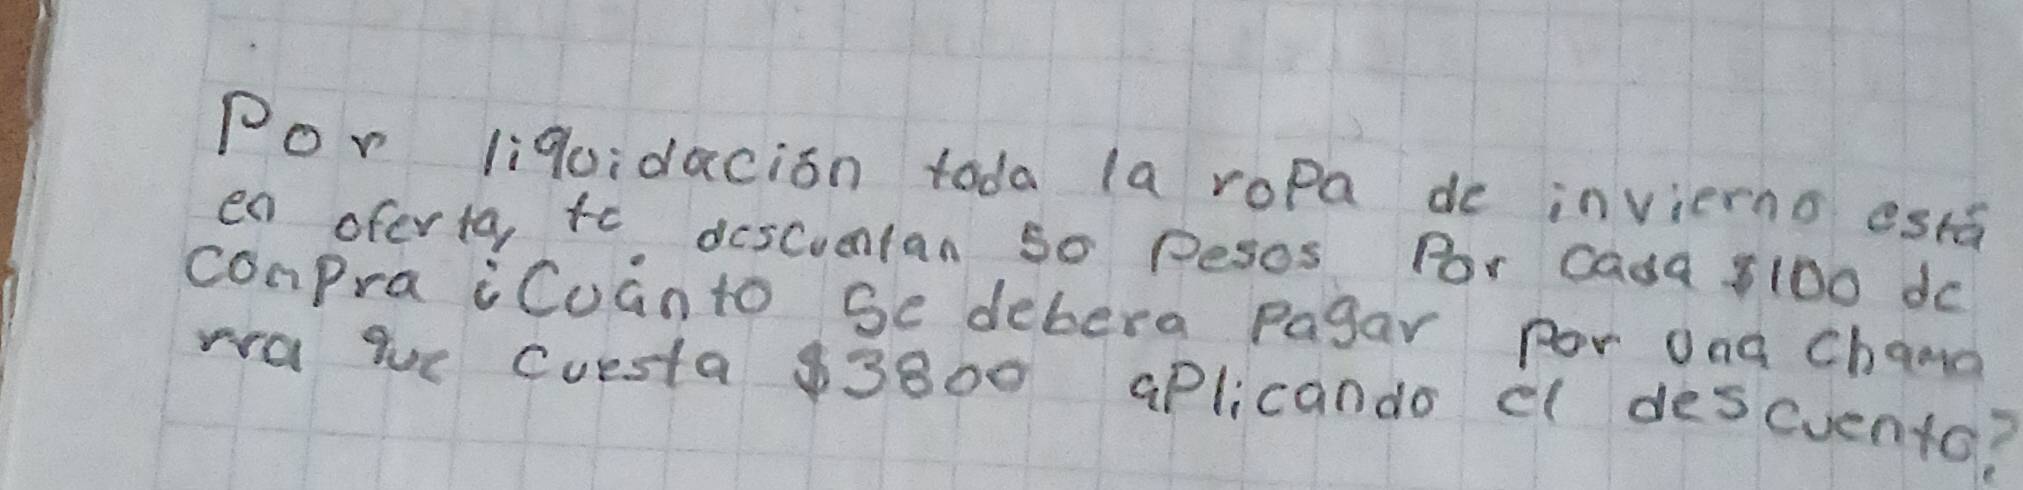 Por liquidación toda la ropa de invierno está
en oferta, te descuentan 50 pesos Por cada $100 de
compra ¿Cuánto se debera pagar por una chama
rra que cuesta $3800 aplicando el descuento?